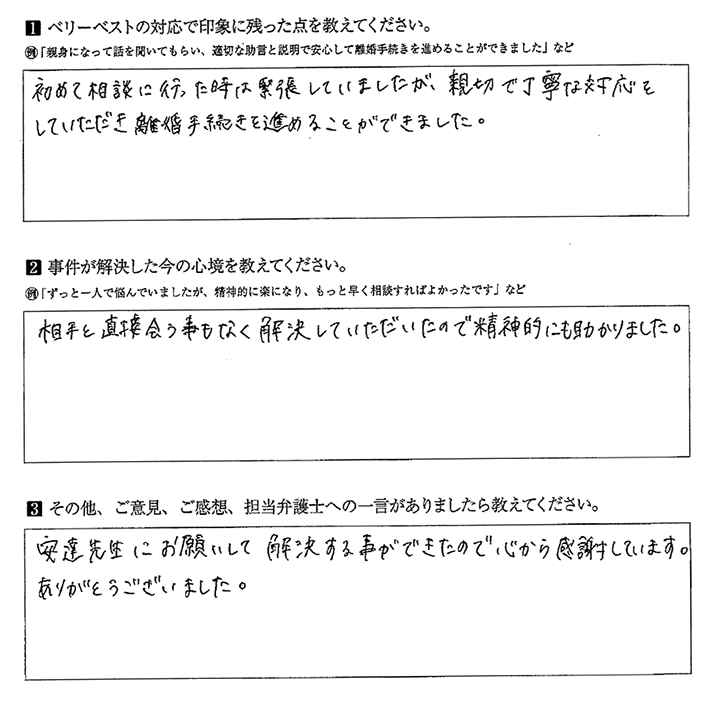 1 ベリーベストの対応で印象に残った点を教えてください。
例「親身になって話を聞いてもらい、適切な助言と説明で安心して離婚手続きを進めることができました」など
初めて相談に行った時は緊張していましたが、親切で丁寧な対応を
していただき離婚手続きを進めることができました。
2 事件が解決した今の心境を教えてください。
例「ずっと一人で悩んでいましたが、精神的に楽になり、もっと早く相談すればよかったです」など
相手と直接会う事もなく解決していただいたので精神的にも助かりました。
3 その他、ご意見、ご感想、担当弁護士への一言がありましたら教えてください。
安達先生にお願いして解決する事ができたので心から感謝しています。
ありがとうございました。